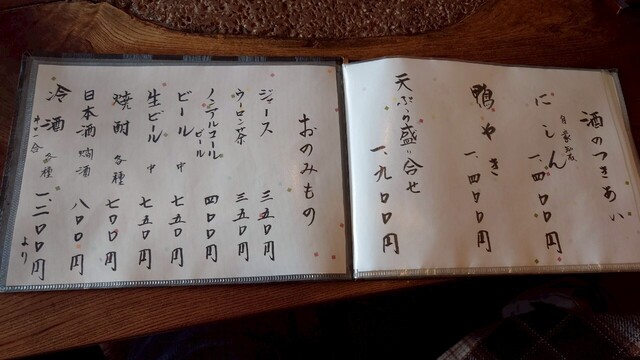 酒のつきあい
自家製
にしん 一、四〇〇円
鴨やき 一、四〇〇円
天ぷら盛り合せ 一、九〇〇円
おのみもの
ジュース 三五〇円
ウーロン茶 三五〇円
ノンアルコールビール 四〇〇円
ビール 中 七五〇円
生ビール 中 七五〇円
焼酎 各種 七〇〇円
日本酒 燗酒 八〇〇円
冷酒 各種 一、二〇〇円より